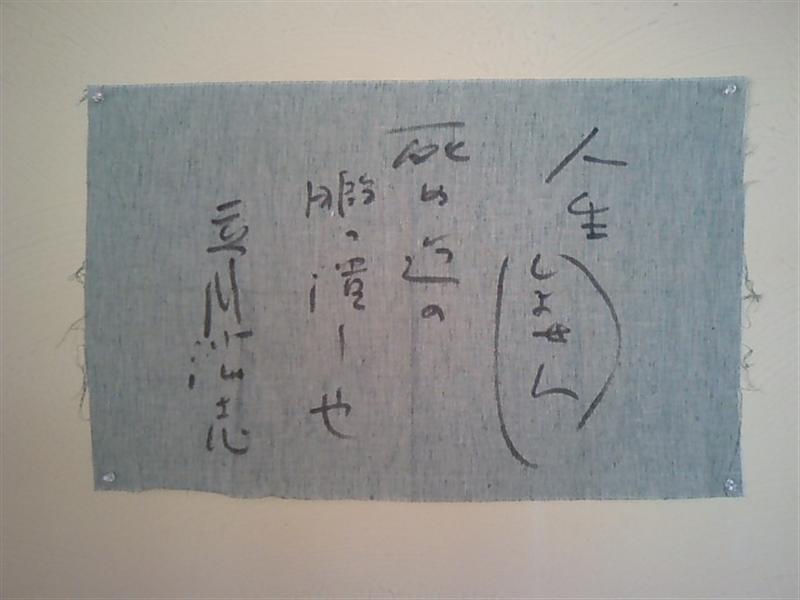 人生
(しょせん)
死ぬ迄の
暇つ潰しや
立川談志